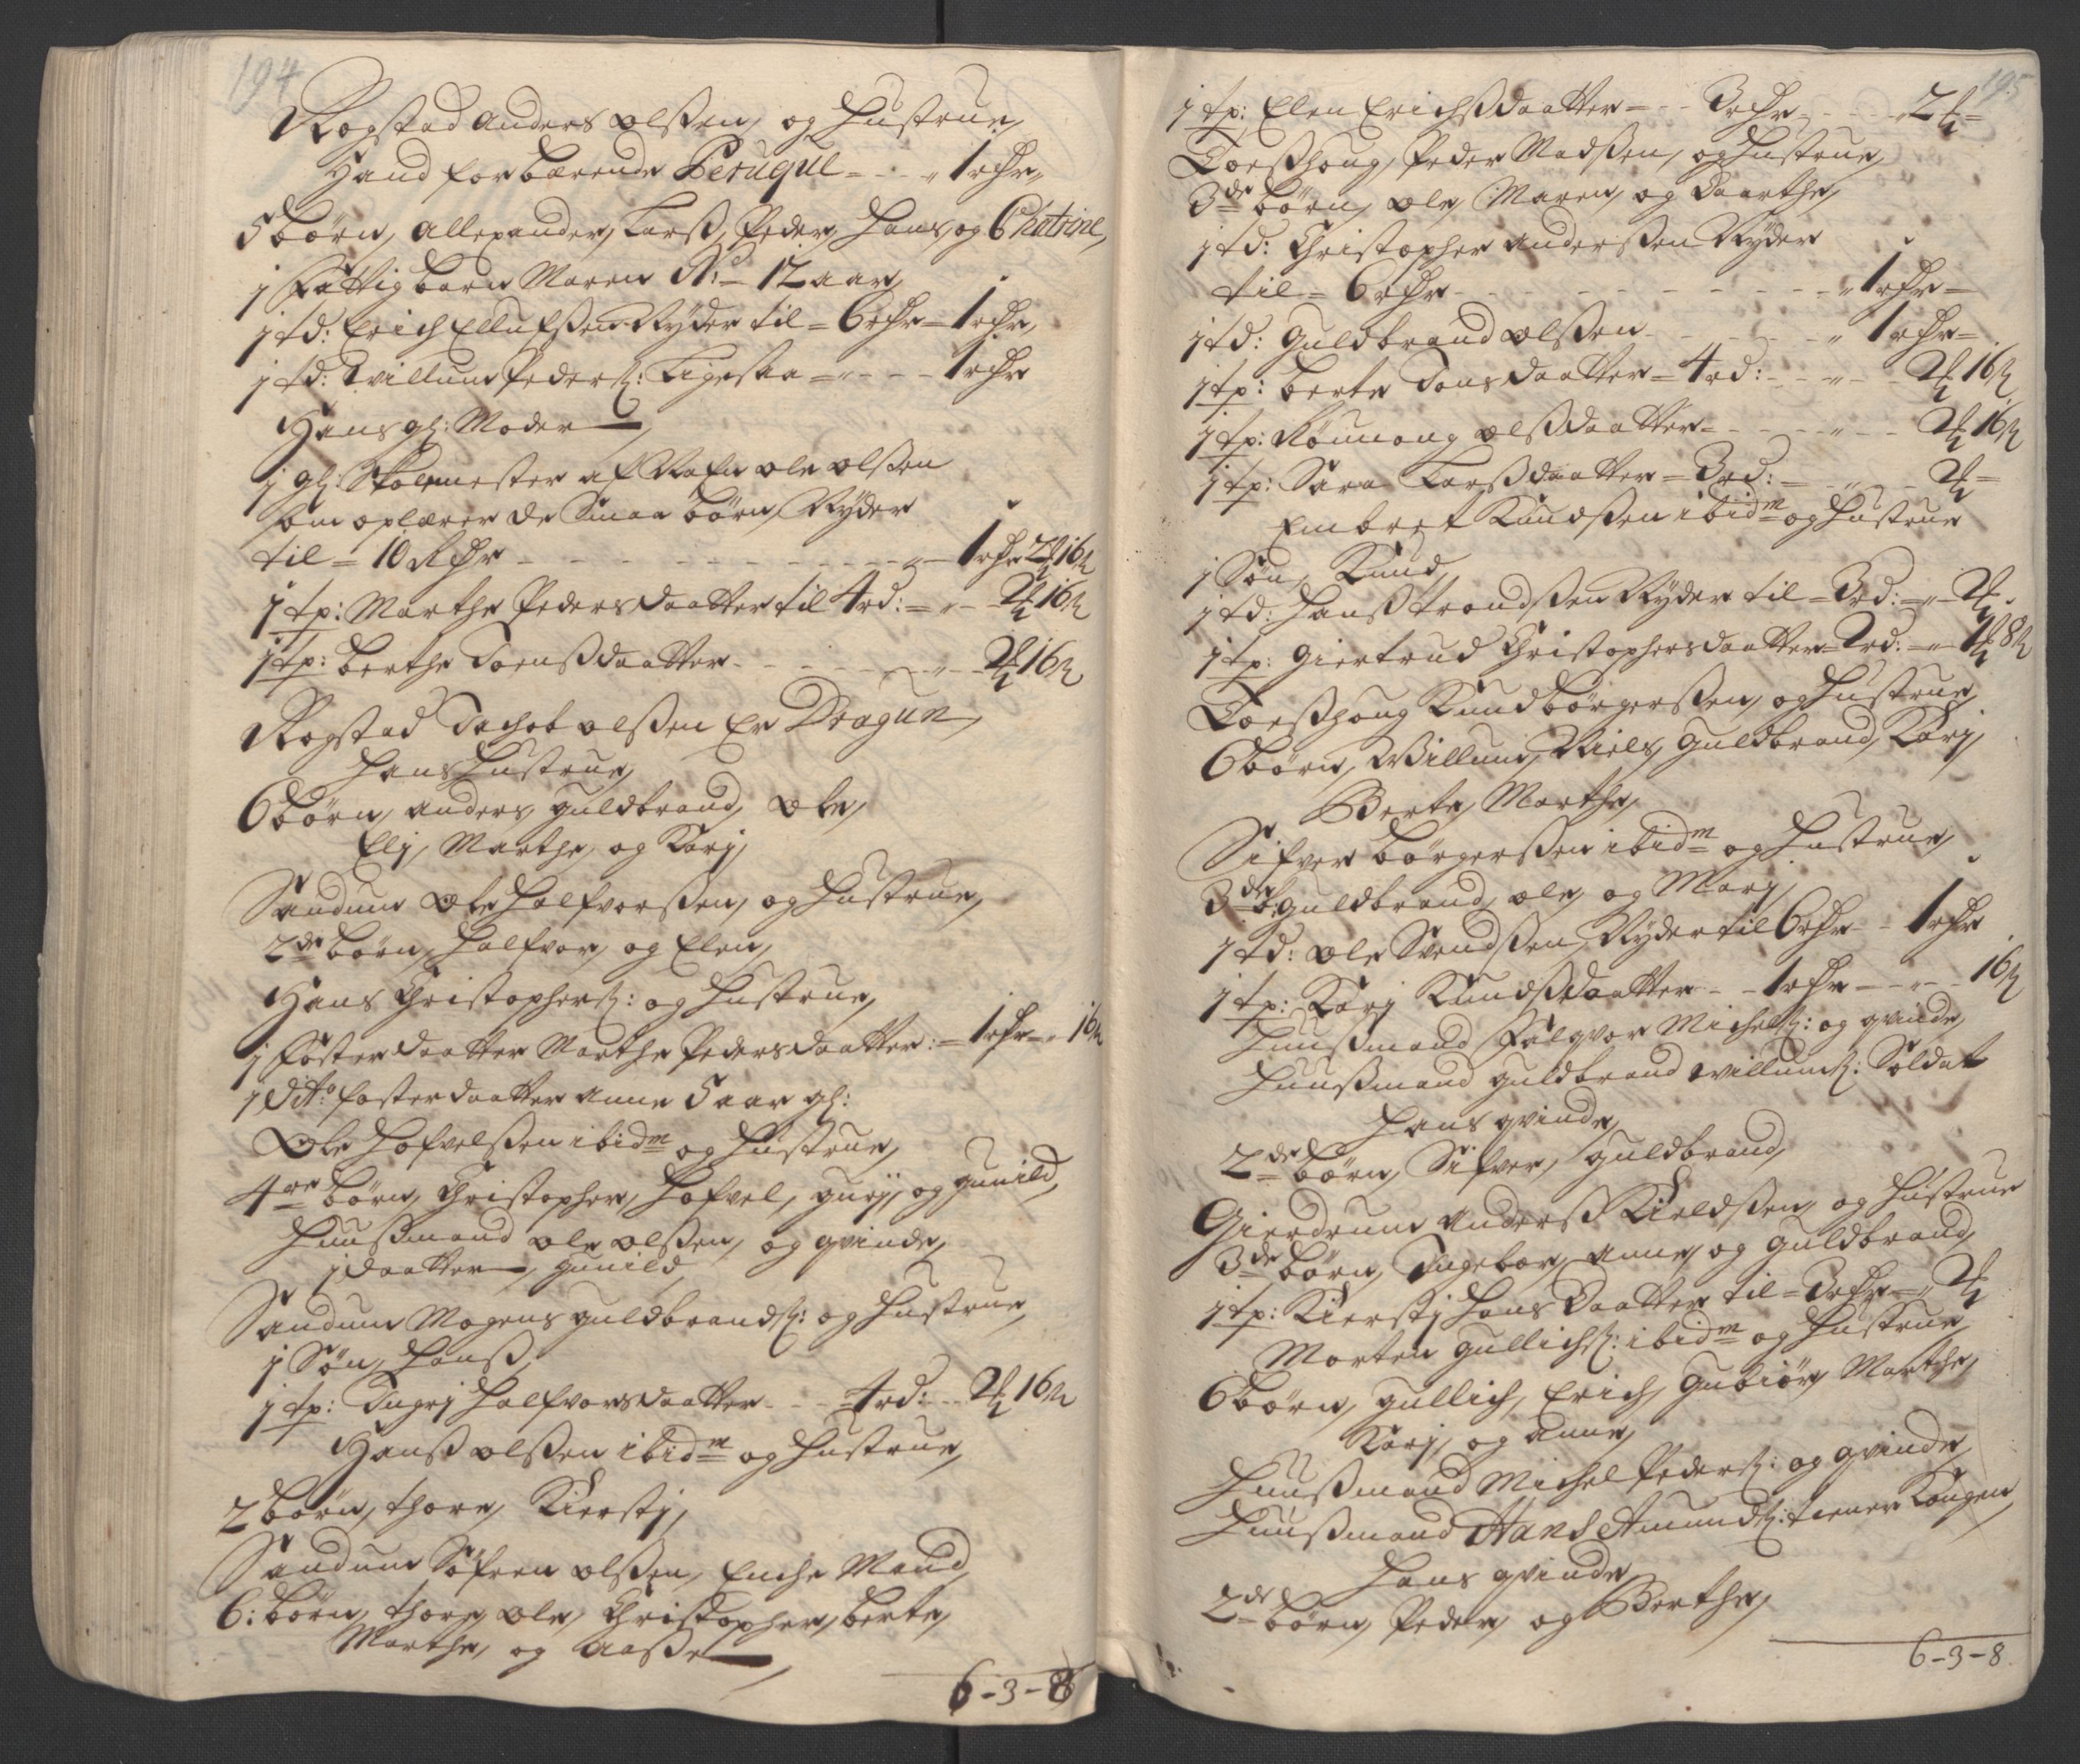 194
Rogstad Anders Olßen, og Hustrue,
Hand forbærende Peruqúe = - - „ 1 rdr„
5 børn, Allexander, Larß, Peder, Hans, og Chatrine,
1 Fattig barn Maren - 12 aar,
1 td: Erich Ellufßen Nyder til = 6 rdr = 1 rdr,
1 td: Willum Peders: Ligesaa = „ - - - 1 rdr
Hans gl: Moder
1 gl: Skolemester af Nafn Ole Olßen
som oplærer de Smaa børn, Nyder
til = 10 Rdr - - - - „ - 1 rdr 2 ₰ 16 ß
1 tp: Marthe Pedersdaatter til 4 rd: = „ - 2 ₰ 16 ß
1 tp: berthe Joenßdaatter - - - - „ - 2 ₰ 16 ß
Rogstad Jachob Olßen Er Dragun,
Hans Hustrue,
6 børn, Anders, Guldbrand, Ole,
Elj, Marthe, og Karj,
Sandum Ole Halfvorßen, og Hustrue,
2de børn, Halfvor, og Elen,
Hans Christophers: og Hustrue,
1 Foster daatter Marthe Pedersdaatter: = 1 rdr = „ 16 ß
1 dito foster daatter Anne 5 aar gl:
Ole Hofvelßen ibidm og Hustrue,
4re børn, Christopher, Hofvel, gurj, og gunild,
Huußmand Ole Olßen, og qvinde,
1 daatter, gunild,
Sandum Mogens guldbrands: og Hustrue,
1 Søn, Hanß,
1 tp: Ingrj Halfvorsdaatter - - - 4 rd: - - 2 ₰ 16 ß
Hanß Olßen ibidm og Hustrue,
2 børn, Thore, Kierstj,
Sandum Søfren Olßen, Enche Mand,
6: børn, Thore, Ole, Christopher, berte,
Marthe, og Aaße
6 - 3 - 8
195
1 tp: Elen Erichßdaatter = - - 3 rdr - - - „ 2 ₰ =
Toeßhoug, Peder Madßen, og Hustrue,
3de børn, Ole, Maren, og Daarthe,
1 td: Christopher Anderßen Nyder
til = 6 rdr - - - - - „ 1 rdr =
1 td: Guldbrand Olßen - - - - „ 1 rdr =
1 tp: berte Jonsdaatter = 4 rd: - - „ - - 2 ₰ 16 ß
1 tp: Rønnoug Olßdaatter = - - - „ - - 2 ₰ 16 ß
1 tp: Sara Larßdaatter = 3 rd: = - „ - - 2 ₰ =
Embret Knudßen ibidm og Hustrue
1 Søn, Knud,
1 td: Hanß Trondßen Nyder til = 3 rd: = „ 2 ₰
1 tp: Giertrud Christophersdaatter = 2 rd: = „ 1 ₰ 8 ß
Toeßhoug Knud børgerßen, og Hustrue,
6 børn, Willum, Niels, Guldbrand, Karj,
Berte, Marthe,
Sifver børgerßen ibidm og Hustrue,
3de b: guldbrand, Ole, og Marj,
1 td: Ole Svendßen, Nyder til 6 rdr - 1 rdr
1 tp: Karj Knudßdaatter - - 1 rdr - - „ - - 16 ß
Huußmand Falqvor Michels: og qvinde,
Huußmand guldbrand Willums: Soldat
Hans qvinde,
2de børn, Sifver, guldbrand,
Gierdrum Anderß Kieldßen, og Hustrue
3de børn, Ingebor, Anne, og Guldbrand,
1 tp: Kierstj Hans Daatter til = 3 rdr = „ 2 ₰
Morten Gullichs: ibidm og Hustrue,
6 børn, Gullich, Erich, Gubiør, Marthe,
Karj, og Anne,
Huußmand Michel Peders: og qvinde,
Huußmand Hans Amunds: tiener Kongen
Hans qvinde,
2de børn, Peder, og Berthe,
6 - 3 - 8